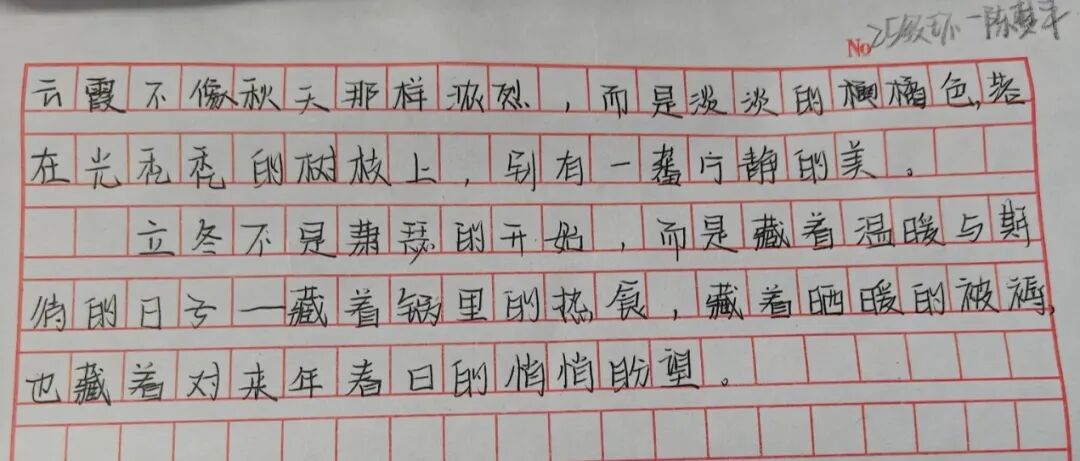 No 25级环一陈
云霞不像秋天那样浓烈，而是淡淡的橘色,落
在光秃秃的树枝上，别有一番宁静的美。
立冬不是萧瑟的开始，而是藏着温暖与期
待的日子—藏着锅里的热食，藏着晒暖的被褥,
也藏着对来年春日的悄悄盼望。